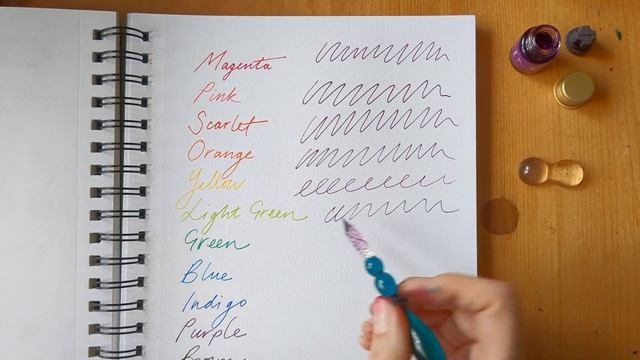 Magenta
Pink
Scarlet
Orange
Yellow
Light Green
Green
Blue
Indigo
Purple